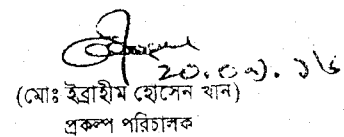 ২০.০৭.১৬
(মোঃ ইব্রাহীম হোসেন খান)
প্রকল্প পরিচালক